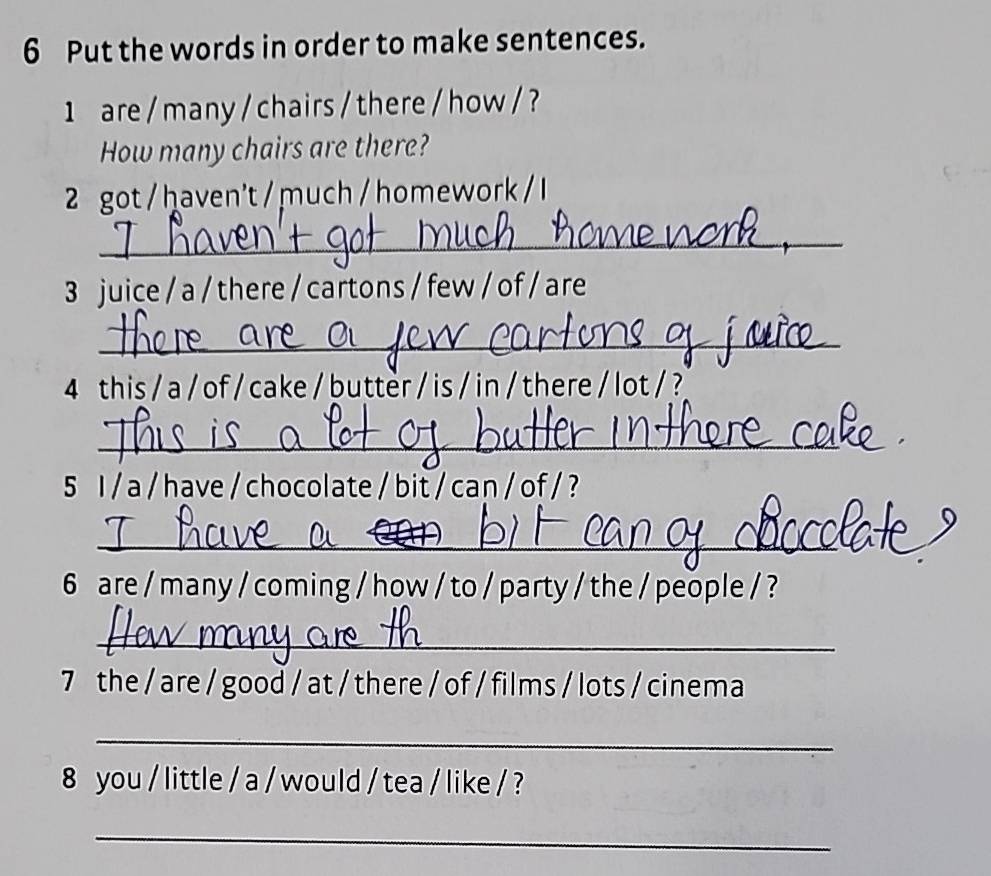 6 Put the words in order to make sentences.
1 are / many / chairs / there / how / ?
How many chairs are there?
2 got / haven't / much / homework / I
I haven't got much homework.
3 juice / a / there / cartons / few / of / are
there are a few cartons of juice
4 this / a / of / cake / butter / is / in / there / lot / ?
This is a lot of butter in there cake.
5 I / a / have / chocolate / bit / can / of / ?
I have a can bit can of chocolate ?
6 are / many / coming / how / to / party / the / people / ?
How many are th
7 the / are / good / at / there / of / films / lots / cinema
8 you / little / a / would / tea / like / ?